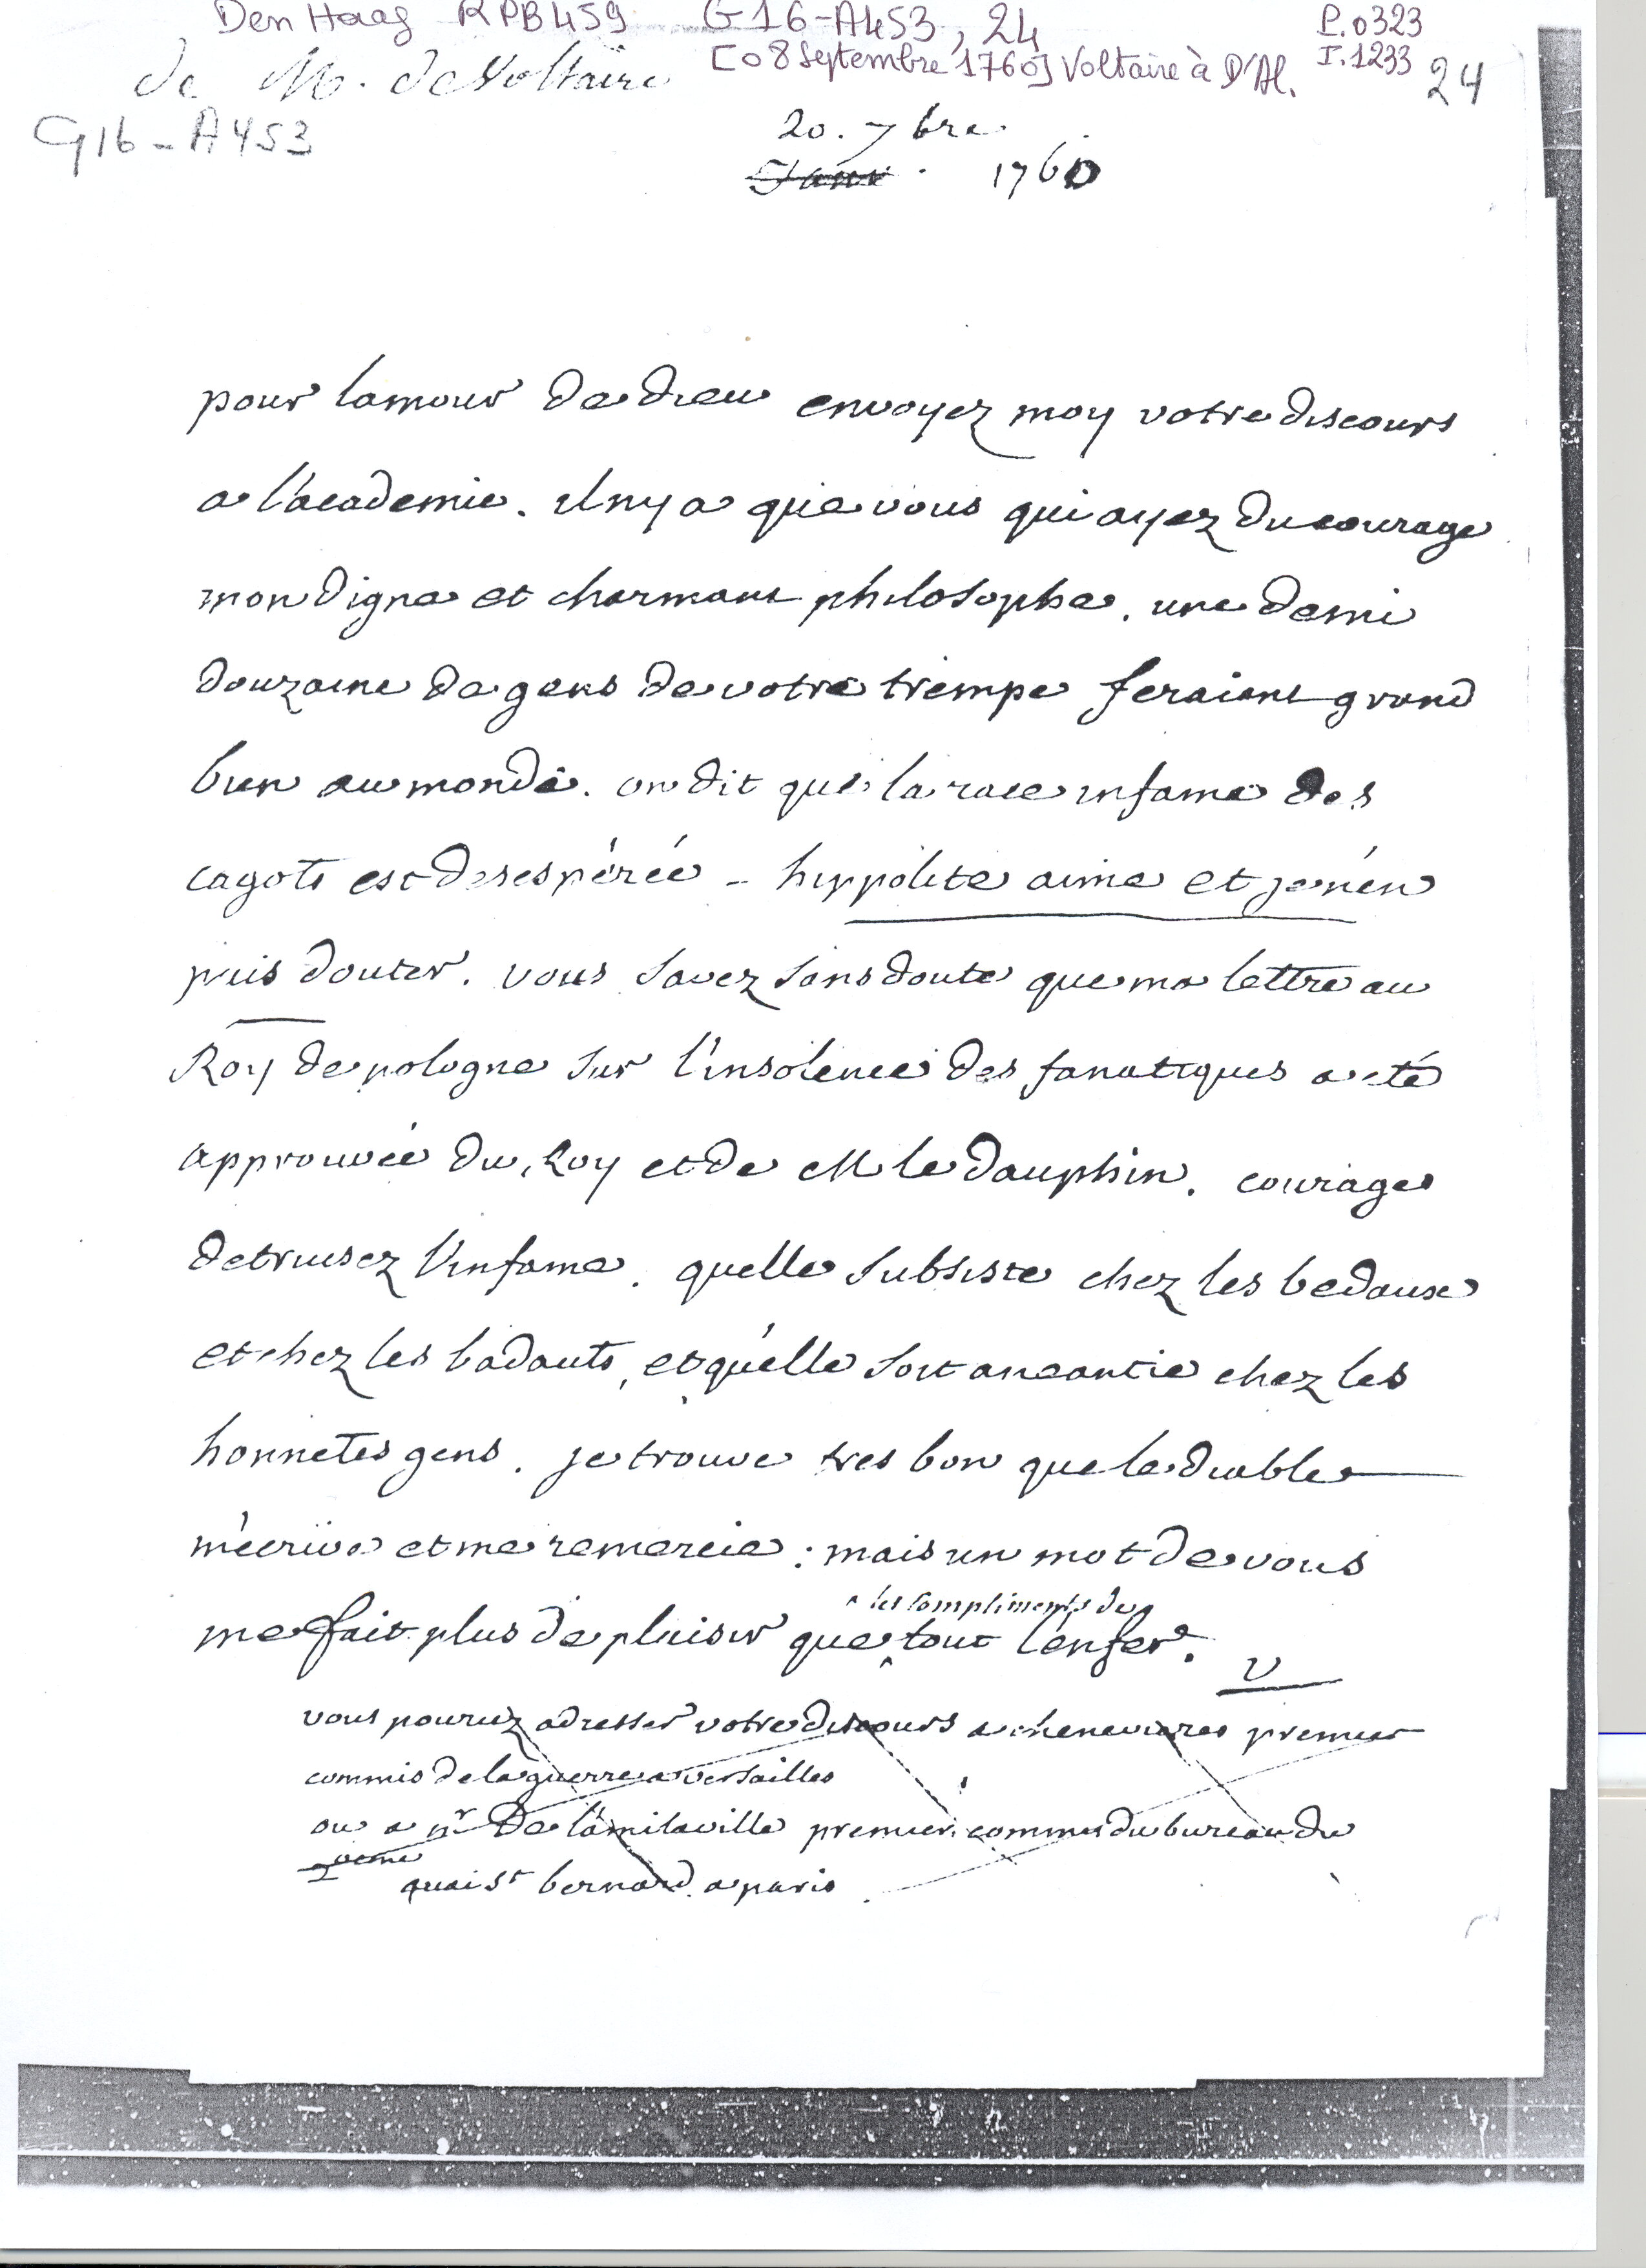 Den Haag RPB459 G16-A453, 24 P.0323
de M. de Voltaire [08 Septembre 1760] Voltaire à D'Al. I.1233 24
G16-A453
20. 7bre
Janv . 1760
pour lamour de dieu envoyez moy votre discours
a l'academie. il ny a que vous qui ayez du courage
mon digne et charmant philosophe. une demi
douzaine de gens de votre trempe feraient grand
bien au monde. on dit que la race infame des
cagots est desespérée - hippolite aime et je n'en
puis douter. vous savez sans doute que ma lettre au
Roy de pologne sur l'insolence des fanatiques a eté
approuvée du Roy et de M le dauphin. courage
detruisez l'infame. quelle subsiste chez les bedaux
et chez les badauts, et qu'elle soit aneantie chez les
honnetes gens. je trouve tres bon que le diable
m'écrive et me remercie: mais un mot de vous
^ les compliments de
me fait plus de plaisir que tout l'enfer.
V
vous pouriez adresser votre discours a chenevieres premier
commis de la guerre a versailles
ou a mr De l'amilaville premier commis du bureau du
quai st bernard a paris